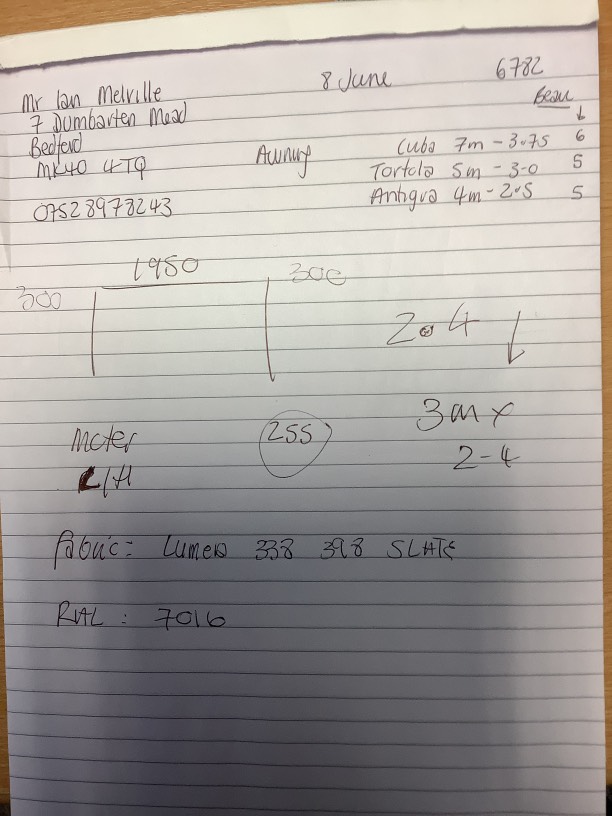 Mr Ian Melville 8 June 6782
7 Dumbarten Mead Beau
Bedford
MK40 4TQ Awning Cuba 7m - 3.75 6
Tortola 5m - 3.0 5
Antigua 4m - 2.5 5
07528978243
1950 300
300
2.4
3m x
2-4
Moter 255
L/H
Fabric: Lumera 338 398 SLATE
RAL : 7016